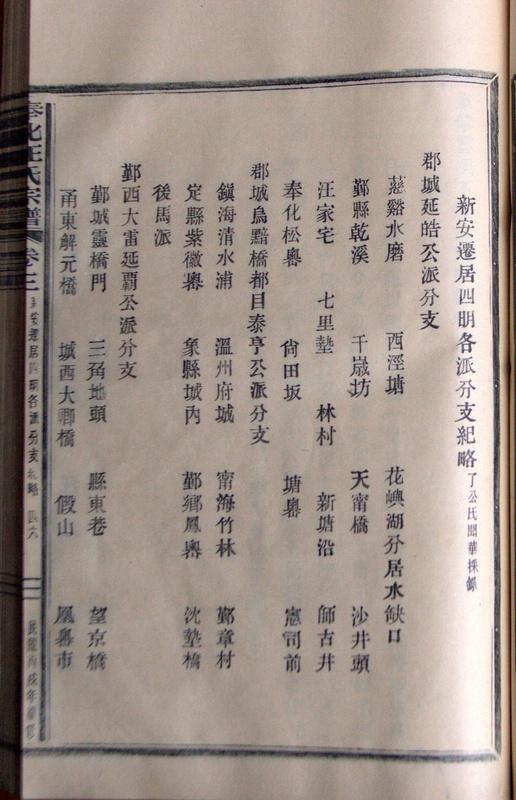 新安遷居四明各派分支紀略 了公氏閒華採錄
郡城延皓公派分支
慈谿水磨 西涇塘 花嶼湖分居水缺口
鄞縣乾溪 千嵗坊 天甯橋 沙井頭
汪家宅 七里墊 林村 新塘沿 師古井
奉化松嶴 尙田坂 塘嶴 憲司前
郡城烏黯橋都目泰亨公派分支
鎭海清水浦 溫州府城 甯海竹林 鄞章村
定縣紫微嶴 象縣城內 鄞鄉鳳嶴 沈墊橋
後馬派
鄞西大雷延覇公派分支
鄞城靈橋門 三角地頭 縣東巷 望京橋
甬東解元橋 城西大卿橋 假山 鳳嶴市
奉北汪氏宗譜 卷之 新安遷居四明各派分支紀略 四六